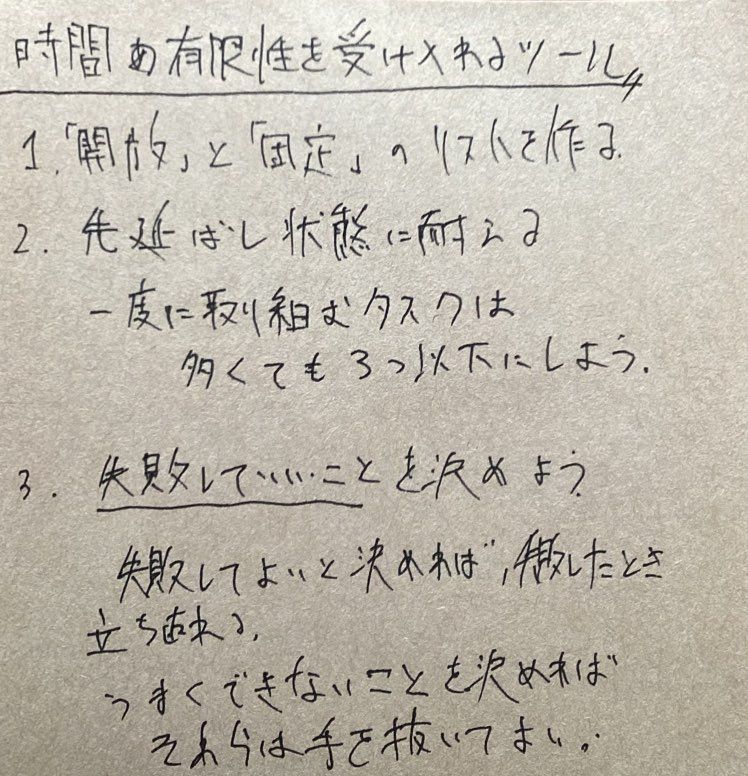 時間の有限性を受け入れるツール
1.「開放」と「固定」のリストを作る.
2. 先延ばし状態に耐える
一度に取り組むタスクは
多くても3つ以下にしよう.
3. 失敗していいことを決めよう.
失敗してよいと決めれば,失敗したとき
立ち直れる.
うまくできないことを決めれば
それらは手を抜いてよい.